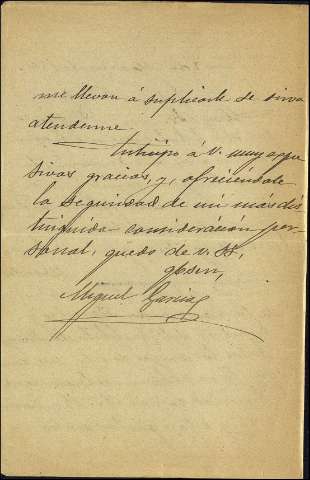 me llevan á suplicarle se sirva
atenderme.
Anticipo á V. muy expre
sivas gracias, y, ofreciéndole
la seguridad de mi más dis
tinguida consideración per-
sonal, quedo de V. SS,
qbsm,
Miguel García